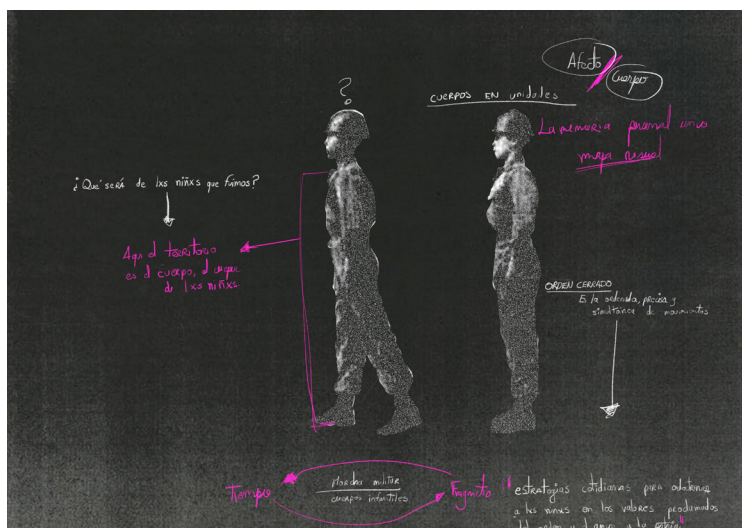 Afecto
Cuerpo
?
CUERPOS EN unidades
La memoria personal como
mapa visual
¿Qué será de lxs niñxs que fuimos?
Aquí el territorio
es el cuerpo, el cuerpo
de lxs niñxs
ORDEN CERRADO
Es la ordenada, precisa y
simultánea de movimientos
Marcha militar
cuerpos infantiles
Tiempo
Fragmento
"estrategias cotidianas para
a lxs niñxs en los valores proclamados
del orden y el amor a la patria"